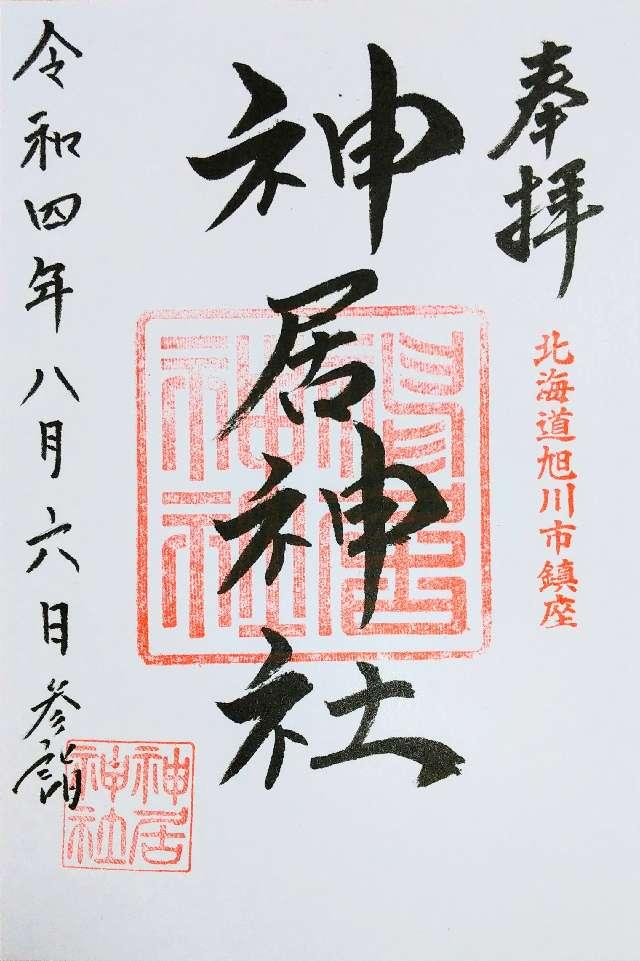 奉拝
北海道旭川市鎮座
神居神社
神居神社
令和四年八月六日参詣
神居神社